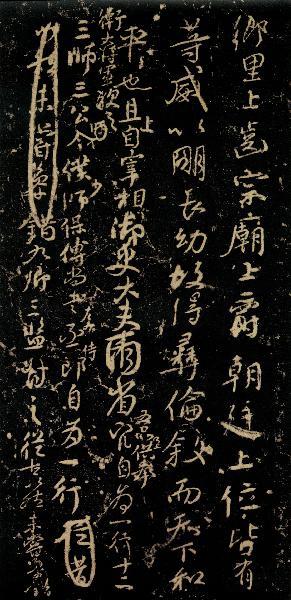 鄉里上齒宗廟上爵朝廷上位皆有
等威以明長幼故得彝倫敘而天下和
平也且上自宰相御史大夫兩省供奉官自為一行十二
衛大將軍次之
三師三公令僕少師保傅尚書左右丞侍郎自為一行
九卿三監對之從古以然未嘗參錯